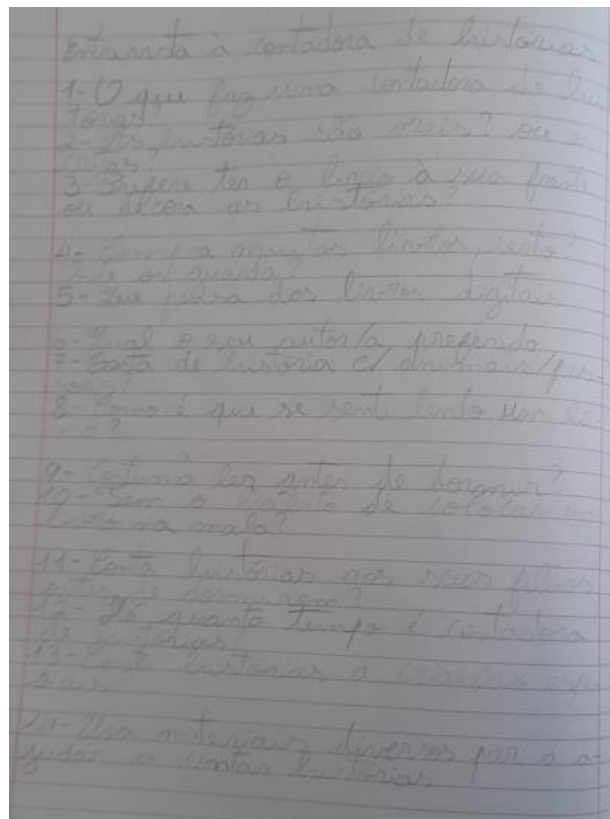 Entrevista à contadora de histórias
1- O que faz uma contadora de his
tórias?
2- As histórias são reais? ou
3- Prefere ter o livro à sua frente
ou decora as histórias?
4- Compra muitos livros,
os guarda?
5- Que pensa dos livros digitais
6- Qual o seu autor/a preferido
7- Gosta de história c/ animais/pes
soas?
8- Como é que se sente lendo um li
vro?
9- Costuma ler antes de dormir?
10- Tem o hábito de colocar um
livro na mala?
11- Conta histórias aos seus filhos
antes de dormirem?
12- Há quanto tempo é contadora
de histórias?
13- Conta histórias a crianças
14- Usa materiais diversos para a a-
judar a contar histórias